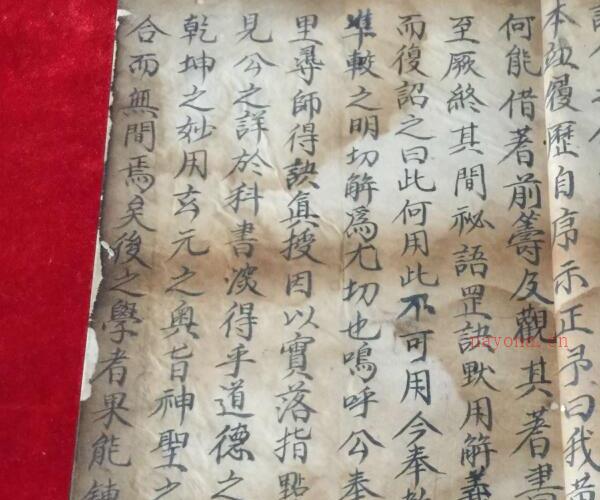 本姓履歷自序示正予曰我黃
何能借著前籌及觀其著書
至厥終其間祕語罡訣默用解義
而復詔之曰此何用此不可用今奉
準較之明切解爲尤切也嗚呼公奉
里尋師得訣真授因以實落指點
見公之詳於科書淡得乎道德之
乾坤之妙用玄元之奧旨神聖之
合而無間焉矣後之學者果能
payone.cn